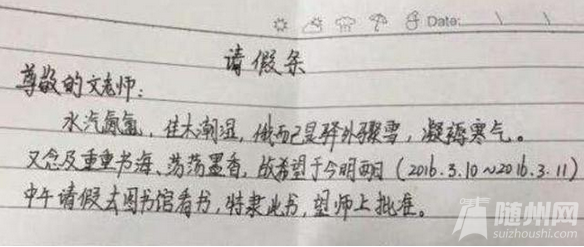 Date:
请假条
尊敬的文老师：
水汽氤氲，佳木潮湿，俄而已是驿外骤雪，凝稠寒气。
又念及重重书海、荡荡墨香，故希望于今明两日（2016.3.10~2016.3.11）
中午请假去图书馆看书，特隶此书，望师上批准。
随州网
suizhoushi.com